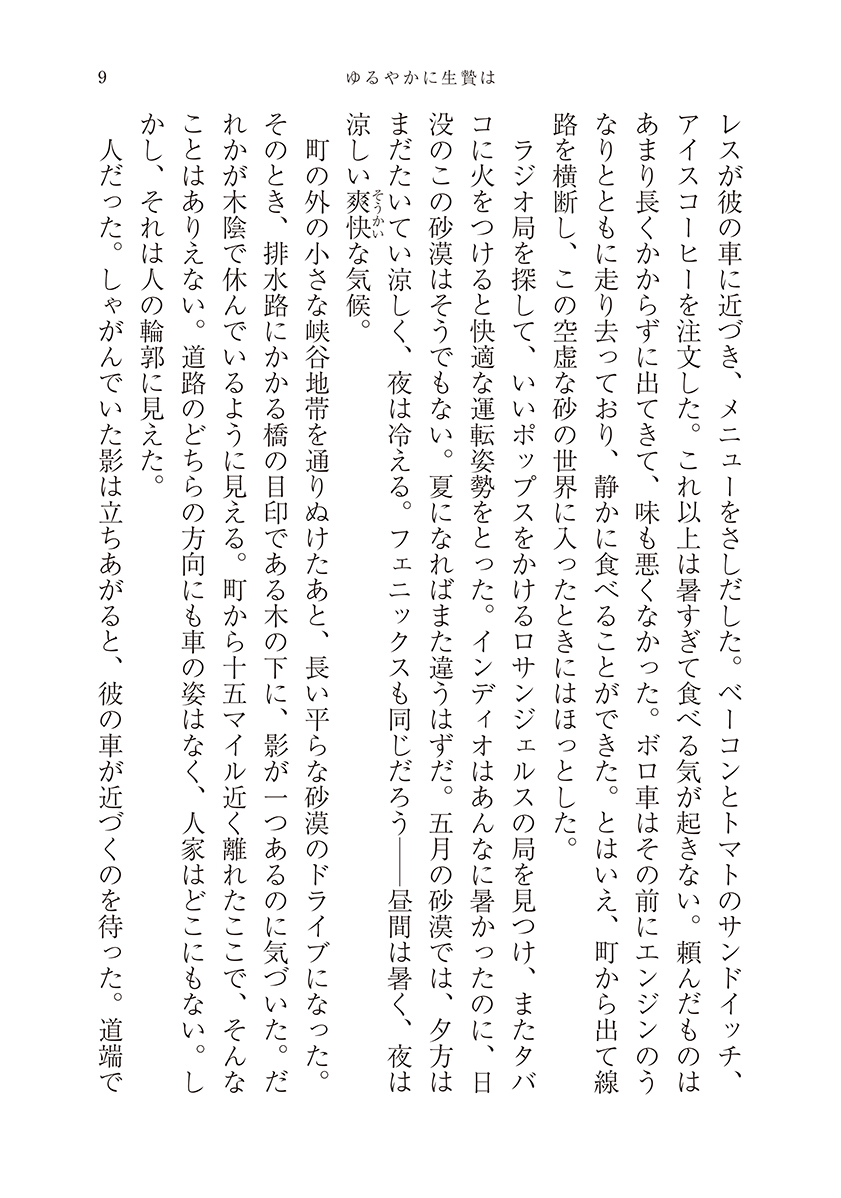 9
ゆるやかに生贄は
レスが彼の車に近づき、メニューをさしだした。ベーコンとトマトのサンドイッチ、
アイスコーヒーを注文した。これ以上は暑すぎて食べる気が起きない。頼んだものは
あまり長くかからずに出てきて、味も悪くなかった。ボロ車はその前にエンジンのう
なりとともに走り去っており、静かに食べることができた。とはいえ、町から出て線
路を横断し、この空虚な砂の世界に入ったときにはほっとした。
ラジオ局を探して、いいポップスをかけるロサンジェルスの局を見つけ、またタバ
コに火をつけると快適な運転姿勢をとった。インディオはあんなに暑かったのに、日
没のこの砂漠はそうでもない。夏になればまた違うはずだ。五月の砂漠では、夕方は
まだたいてい涼しく、夜は冷える。フェニックスも同じだろう――昼間は暑く、夜は
涼しい爽快そうかいな気候。
町の外の小さな峡谷地帯を通りぬけたあと、長い平らな砂漠のドライブになった。
そのとき、排水路にかかる橋の目印である木の下に、影が一つあるのに気づいた。だ
れかが木陰で休んでいるように見える。町から十五マイル近く離れたここで、そんな
ことはありえない。道路のどちらの方向にも車の姿はなく、人家はどこにもない。し
かし、それは人の輪郭に見えた。
人だった。しゃがんでいた影は立ちあがると、彼の車が近づくのを待った。道端で